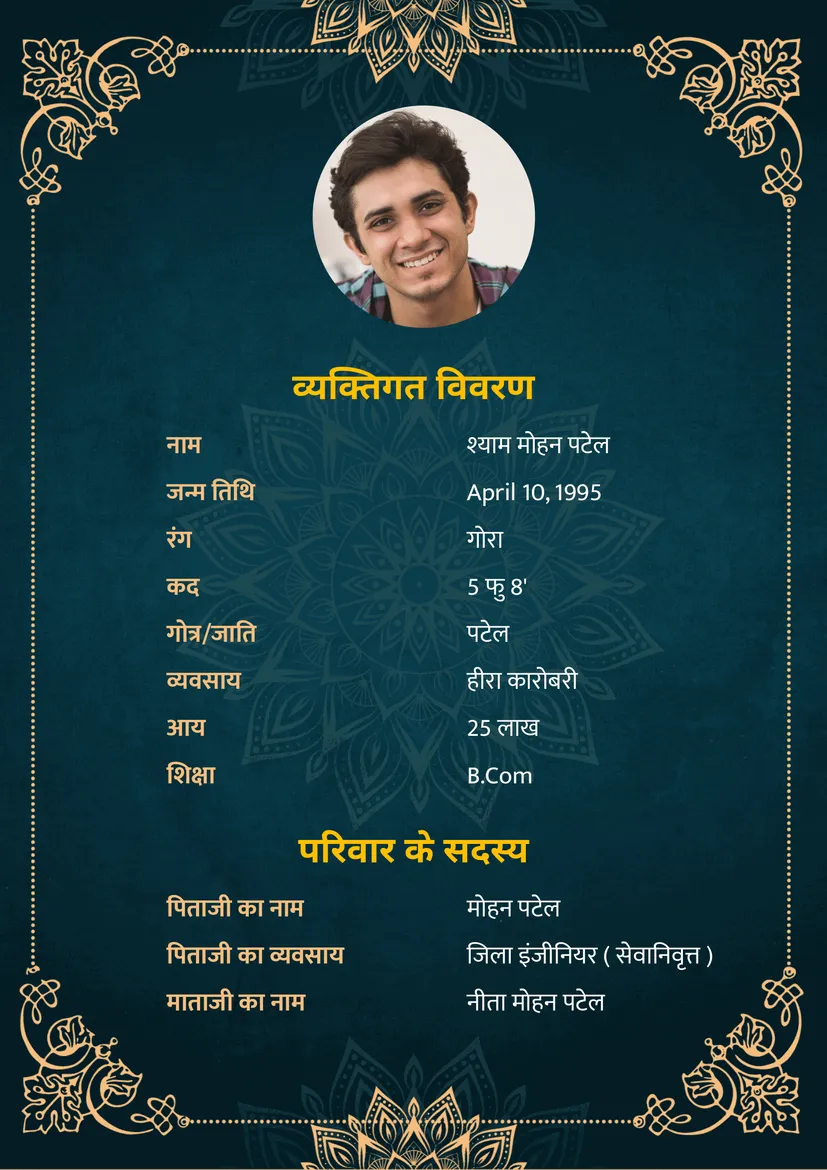 व्यक्तिगत विवरण
नाम श्याम मोहन पटेल
जन्म तिथि April 10, 1995
रंग गोरा
कद 5 फु 8'
गोत्र/जाति पटेल
व्यवसाय हीरा कारोबरी
आय 25 लाख
शिक्षा B.Com
परिवार के सदस्य
पिताजी का नाम मोहन पटेल
पिताजी का व्यवसाय जिला इंजीनियर ( सेवानिवृत्त )
माताजी का नाम नीता मोहन पटेल